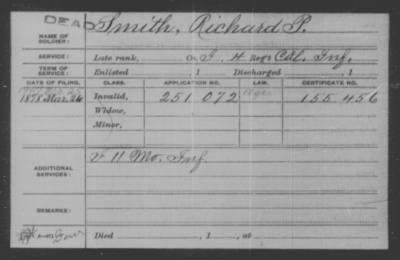 DEAD
NAME OF SOLDIER: Smith, Richard P.
SERVICE: Late rank, Co. I, 4 Reg't Cal. Inf.
TERM OF SERVICE: Enlisted , 1 Discharged , 1
DATE OF FILING. CLASS. APPLICATION NO. LAW. CERTIFICATE NO.
1878 Mar. 26 Invalid, 251 072 155 456
Widow,
Minor,
ADDITIONAL SERVICES: F 11 Mo. Inf.
REMARKS:
Died , 1 , at